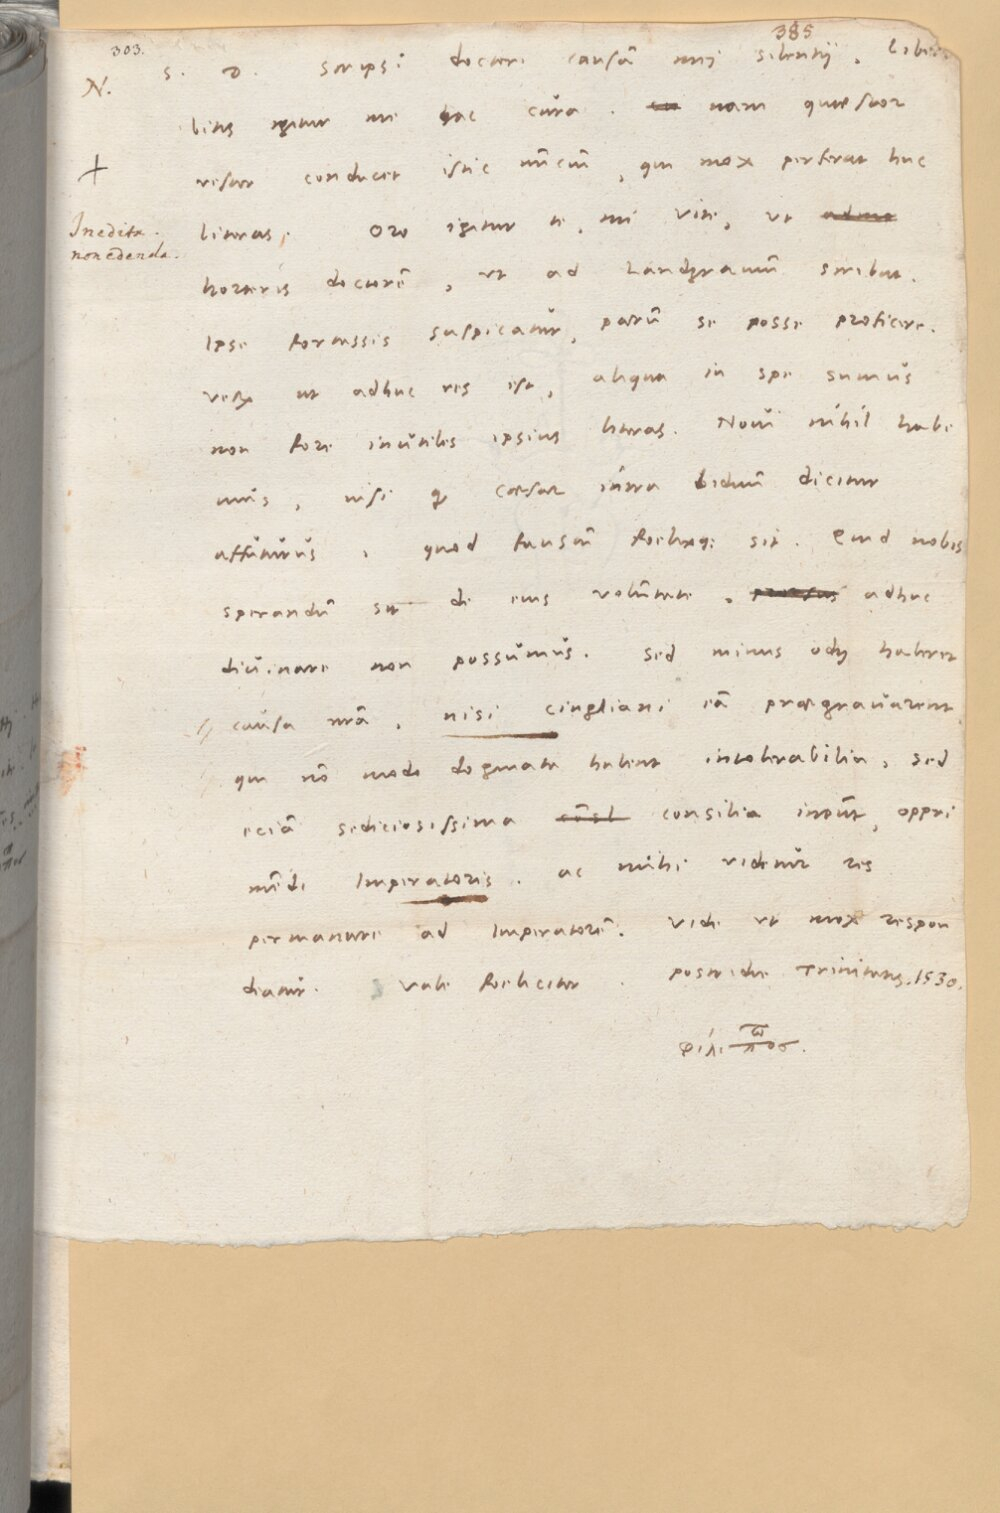 385
303.
N.
+
Inedita.
non edenda.
S. D. Scripsi doctori causā mei silentij. Libera
bitis igitur me hac cura. nam quæstor
vester conducet istic nūciū, qui mox perferat huc
literas. Oro igitur te, mi Vite, ut
horteris doctorē, ut ad Landgrauiū scribat.
Ipse fortassis suspicatur, parū se posse proficere.
ut adhuc res est, aliqua in spe sumus
non fore inutiles ipsius literas. Novi nihil habe
mus, nisi q Cæsar intra biduū dicitur
affuturus, quod faustū fœlixq; sit. Quid nobis
sperandū sit de eius volūtate, prorsus adhuc
diuinare non possumus. Sed minus odij haberet
causa nrā, nisi cingliani eā prægrauarent,
qui nō modo dogmata habent intolerabilia, sed
eciā sediciosissima consilia ineūt, oppri
mēdi Imperatoris. ac mihi videtur res
permanare ad Imperatorē. Vide ut mox respon
deatur. Vale fœliciter. postridie Trinitatis. 1530.
φίλιππος.